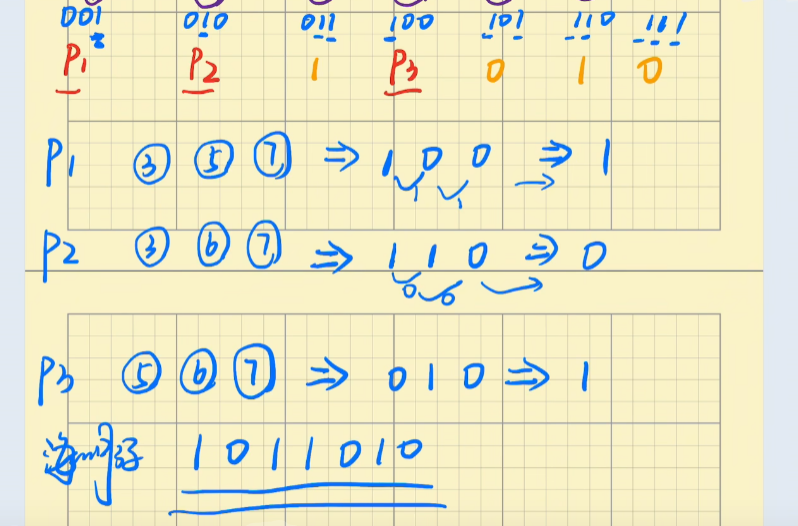 001 010 011 100 101 110 111
P1 P2 1 P3 0 1 0
P1 ③ ⑤ ⑦ ⇒ 1 0 0 ⇒ 1
1 1
P2 ③ ⑥ ⑦ ⇒ 1 1 0 ⇒ 0
0 0
P3 ⑤ ⑥ ⑦ ⇒ 0 1 0 ⇒ 1
1011010